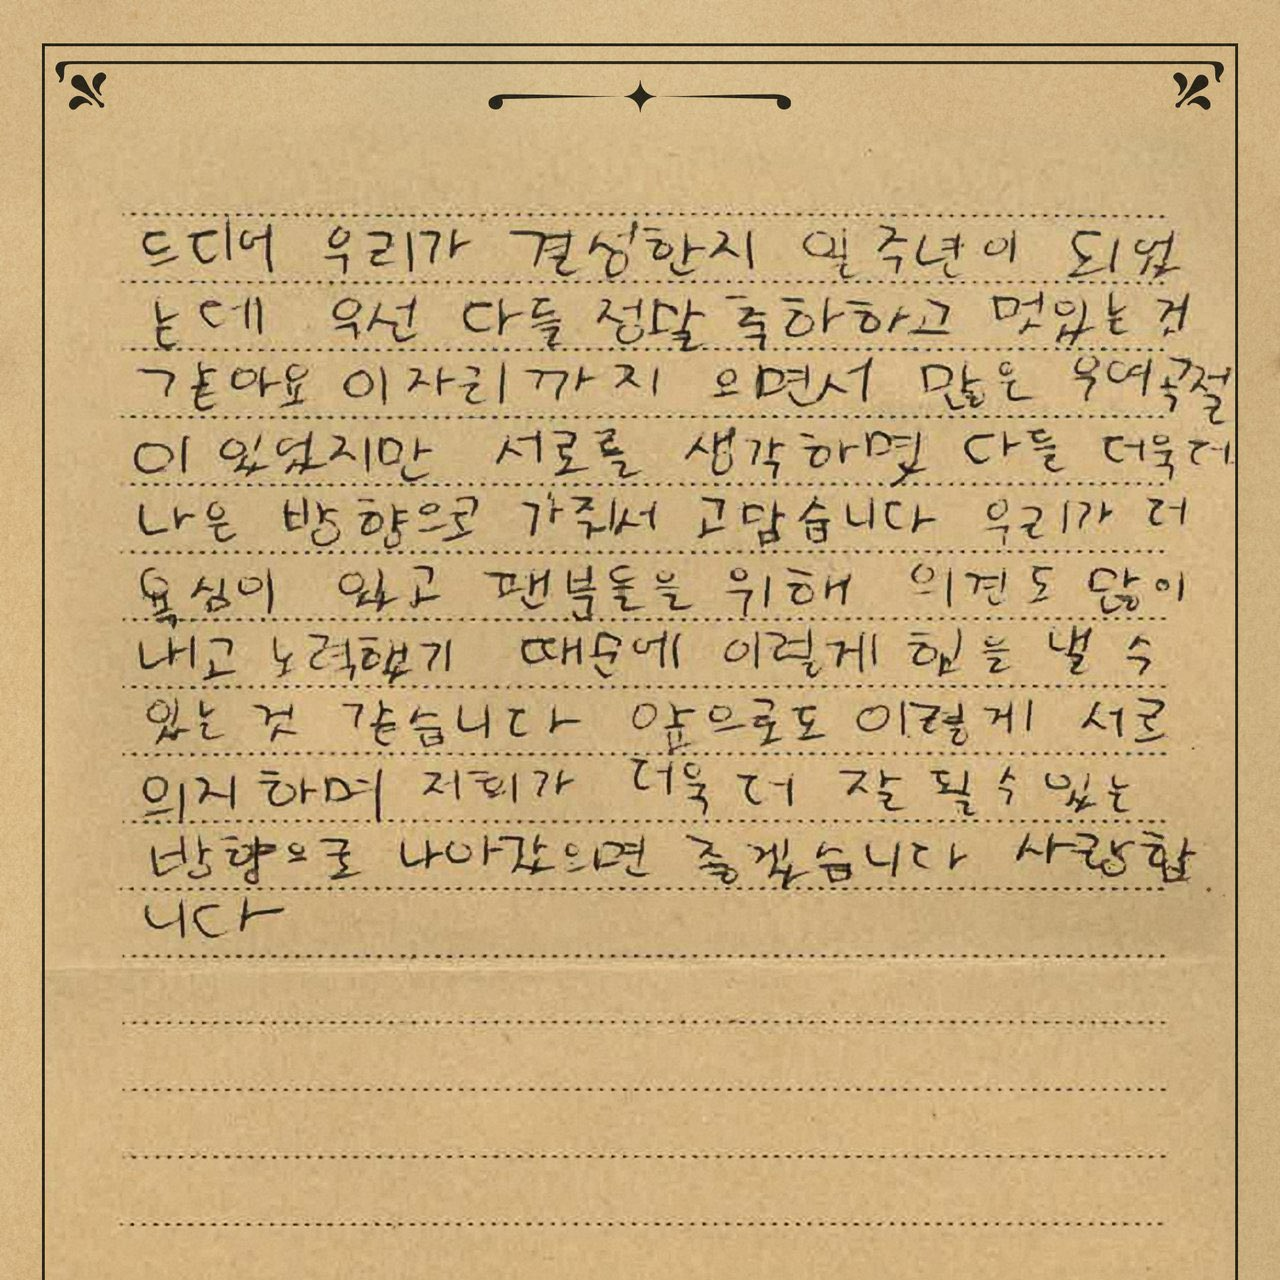 드디어 우리가 결성한지 일주년이 되었
는데 우선 다들 정말 축하하고 멋있는 것
같아요 이자리까지 으면서 많은 우여곡절
이 있었지만 서로를 생각하며 다들 더욱더
나은 방향으로 가줘서 고맙습니다 우리가 더
욕심이 있고 팬분들을 위해 의견도 많이
내고 노력했기 때문에 이렇게 힘을 낼 수
있는 것 같습니다 앞으로도 이렇게 서로
의지하며 저희가 더욱 더 잘 될 수 있는
방향으로 나아갔으면 좋겠습니다 사랑합
니다